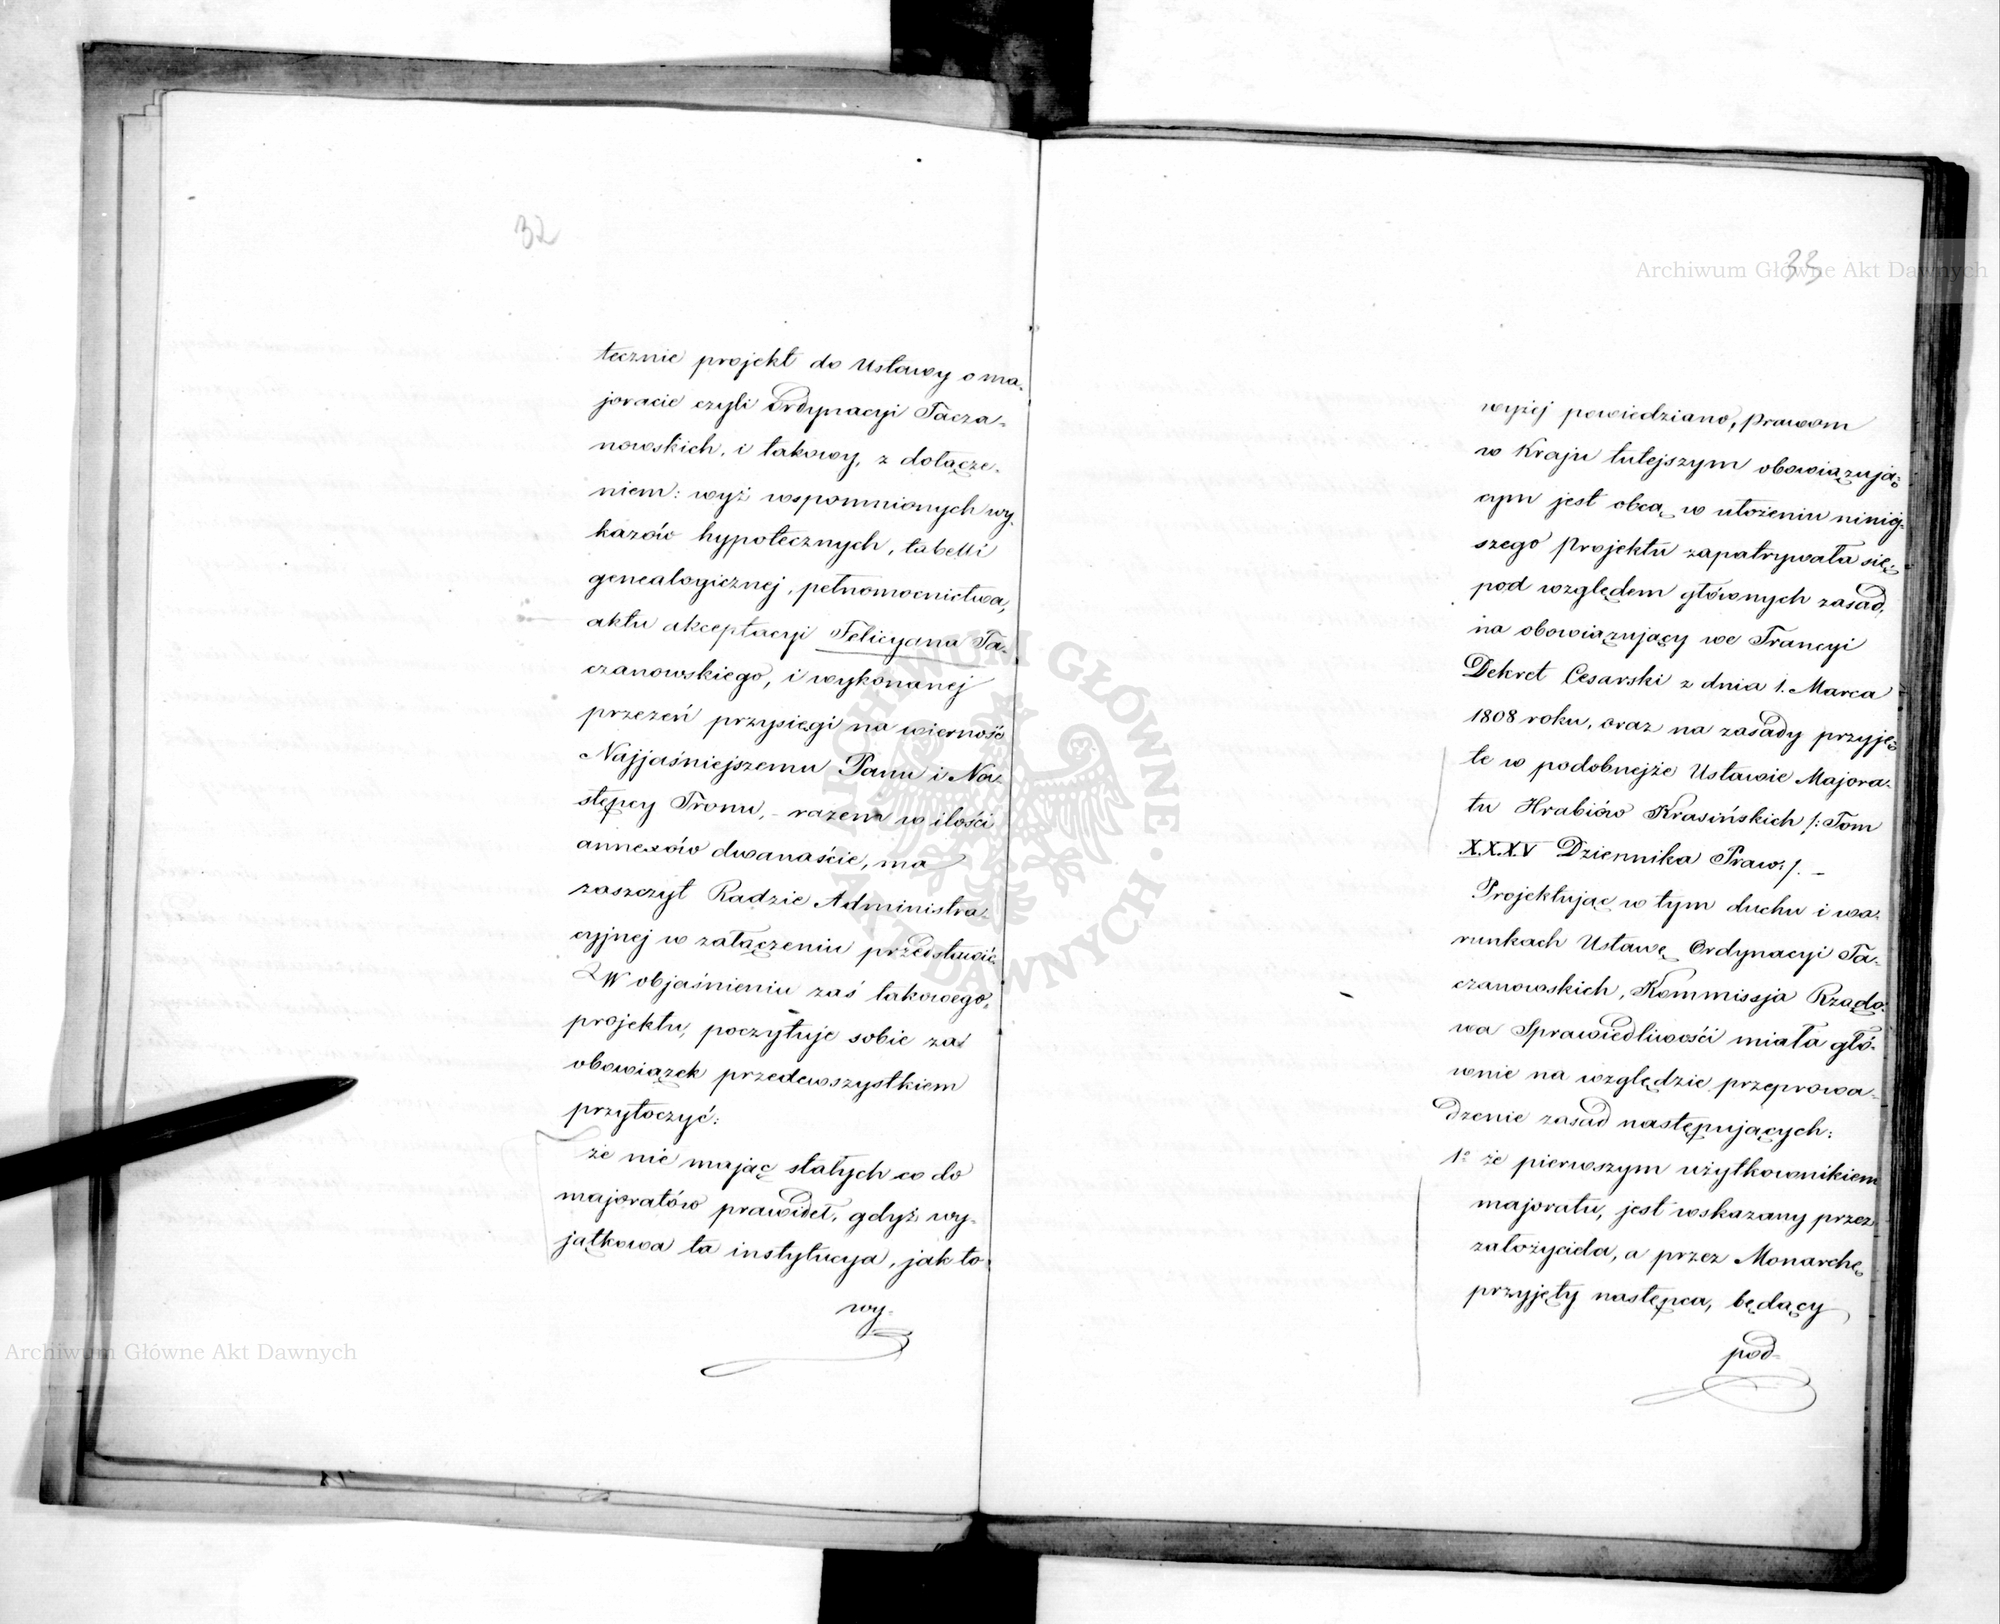 32
tecznie projekt do Ustawy o ma-
joracie czyli Ordynacyi Tacza-
nowskich, i takowy, z dołącze-
niem: wyż wspomnionych wy-
kazów hypotecznych, tabelli
genealogicznej, pełnomocnictwa,
aktu akceptacyi Felicyana Ta-
czanowskiego, i wykonanej
przezeń przysięgi na wierność
Najjaśniejszemu Panu i Na-
stępcy Tronu, - razem w ilości
annexów dwanaście, ma
zaszczyt Radzie Administra-
cyjnej w załączeniu przedstawić.
W objaśnieniu zaś takowego,
projektu, poczytuje sobie za
obowiązek przedewszystkiem
przytoczyć:
że nie mając stałych co do
majoratów prawideł, gdyż wy-
jątkowa ta instytucya, jak to
wy-
33
wyżej powiedziano, prawom
w Kraju tutejszym obowiązują-
cym jest obcą, w ułożeniu niniej-
szego projektu zapatrywała się,
pod względem głównych zasad,
na obowiązujący we Francyi
Dekret Cesarski z dnia 1. Marca
1808 roku, oraz na zasady przyję-
te w podobnejże Ustawie Majora-
tu Hrabiów Krasińskich /: Tom
XXXV Dziennika Praw:/. -
Projektując w tym duchu i wa-
runkach Ustawę Ordynacyi Ta-
czanowskich, Kommissja Rządo-
wa Sprawiedliwości miała głó-
wnie na względzie przeprowa-
dzenie zasad następujących:
1º że pierwszym użytkownikiem
majoratu, jest wskazany przez
założyciela, a przez Monarchę
przyjęty następca, będący
pod-
Archiwum Główne Akt Dawnych
Archiwum Główne Akt Dawnych
ARCHIWUM GŁÓWNE AKT DAWNYCH